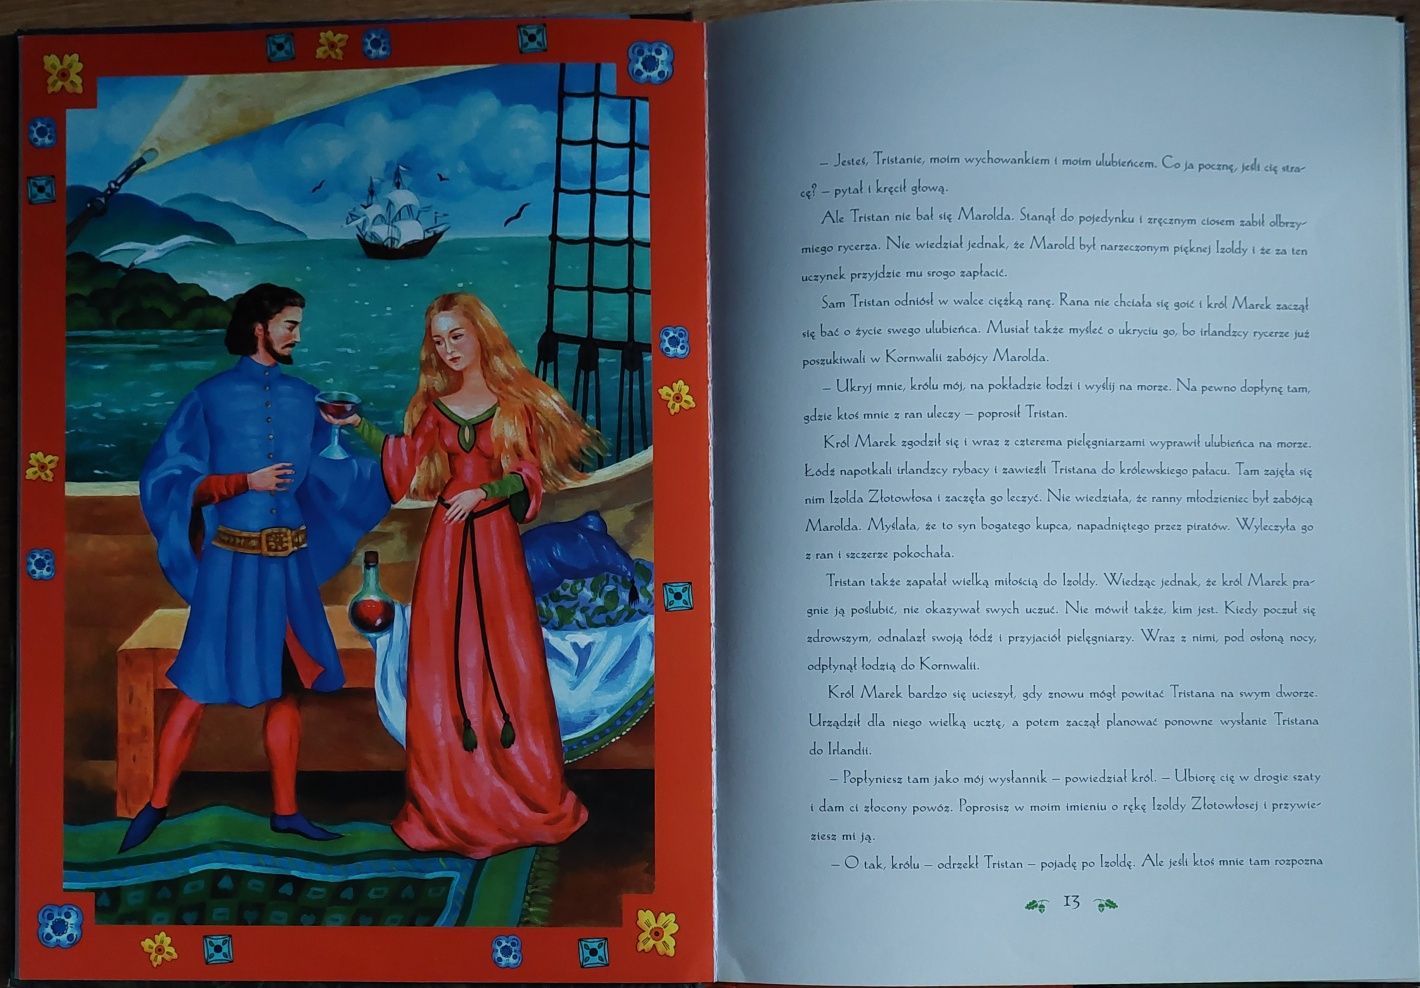 – Jesteś, Tristanie, moim wychowankiem i moim ulubieńcem. Co ja pocznę, jeśli cię stra-
cę? – pytał i kręcił głową.
Ale Tristan nie bał się Marolda. Stanął do pojedynku i zręcznym ciosem zabił olbrzy-
miego rycerza. Nie wiedział jednak, że Marold był narzeczonym pięknej Izoldy i że za ten
uczynek przyjdzie mu srogo zapłacić.
Sam Tristan odniósł w walce ciężką ranę. Rana nie chciała się goić i król Marek zaczął
się bać o życie swego ulubieńca. Musiał także myśleć o ukryciu go, bo irlandzcy rycerze już
poszukiwali w Kornwalii zabójcy Marolda.
– Ukryj mnie, królu mój, na pokładzie łodzi i wyślij na morze. Na pewno dopłynę tam,
gdzie ktoś mnie z ran uleczy – poprosił Tristan.
Król Marek zgodził się i wraz z czterema pielęgniarzami wyprawił ulubieńca na morze.
Łódź napotkali irlandzcy rybacy i zawieźli Tristana do królewskiego pałacu. Tam zajęła się
nim Izolda Złotowłosa i zaczęła go leczyć. Nie wiedziała, że ranny młodzieniec był zabójcą
Marolda. Myślała, że to syn bogatego kupca, napadniętego przez piratów. Wyleczyła go
z ran i szczerze pokochała.
Tristan także zapałał wielką miłością do Izoldy. Wiedząc jednak, że król Marek pra-
gnie ją poślubić, nie okazywał swych uczuć. Nie mówił także, kim jest. Kiedy poczuł się
zdrowszym, odnalazł swoją łódź i przyjaciół pielęgniarzy. Wraz z nimi, pod osłoną nocy,
odpłynął łodzią do Kornwalii.
Król Marek bardzo się ucieszył, gdy znowu mógł powitać Tristana na swym dworze.
Urządził dla niego wielką ucztę, a potem zaczął planować ponowne wysłanie Tristana
do Irlandii.
– Popłyniesz tam jako mój wysłannik – powiedział król. – Ubiorę cię w drogie szaty
i dam ci złocony powóz. Poprosisz w moim imieniu o rękę Izoldy Złotowłosej i przywie-
ziesz mi ją.
– O tak, królu – odrzekł Tristan – pojadę po Izoldę. Ale jeśli ktoś mnie tam rozpozna
13